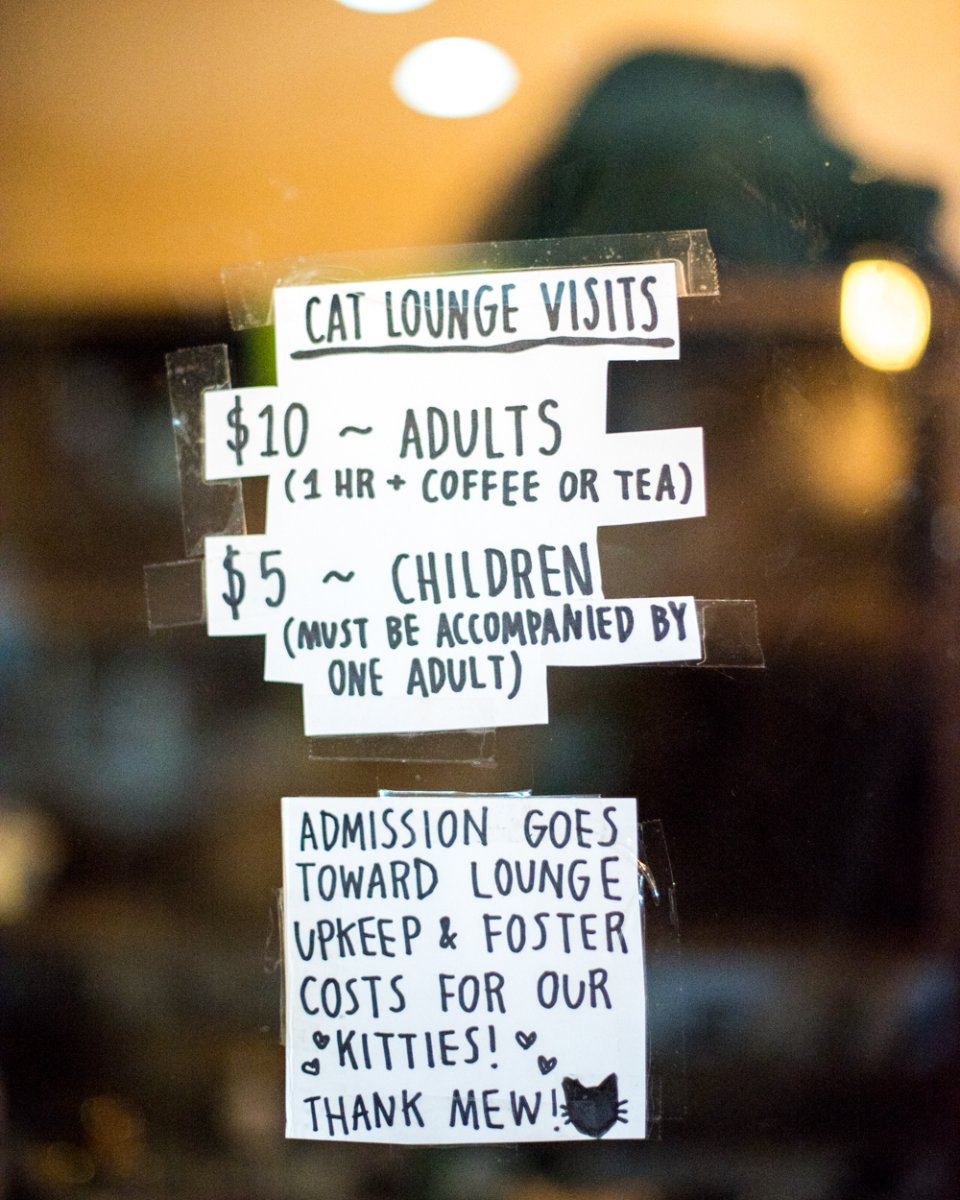 CAT LOUNGE VISITS
$10 ~ ADULTS
(1 HR + COFFEE OR TEA)
$5 ~ CHILDREN
(MUST BE ACCOMPANIED BY
ONE ADULT)
ADMISSION GOES
TOWARD LOUNGE
UPKEEP & FOSTER
COSTS FOR OUR
KITTIES!
THANK MEW!